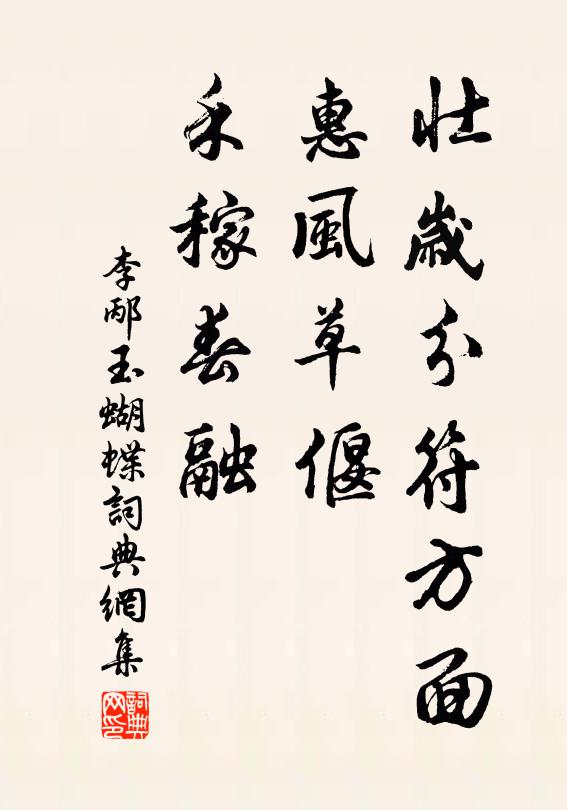 壮歲分符方面
惠風草偃
禾稼春融
李邴玉蝴蝶詞典網集
詞典網印